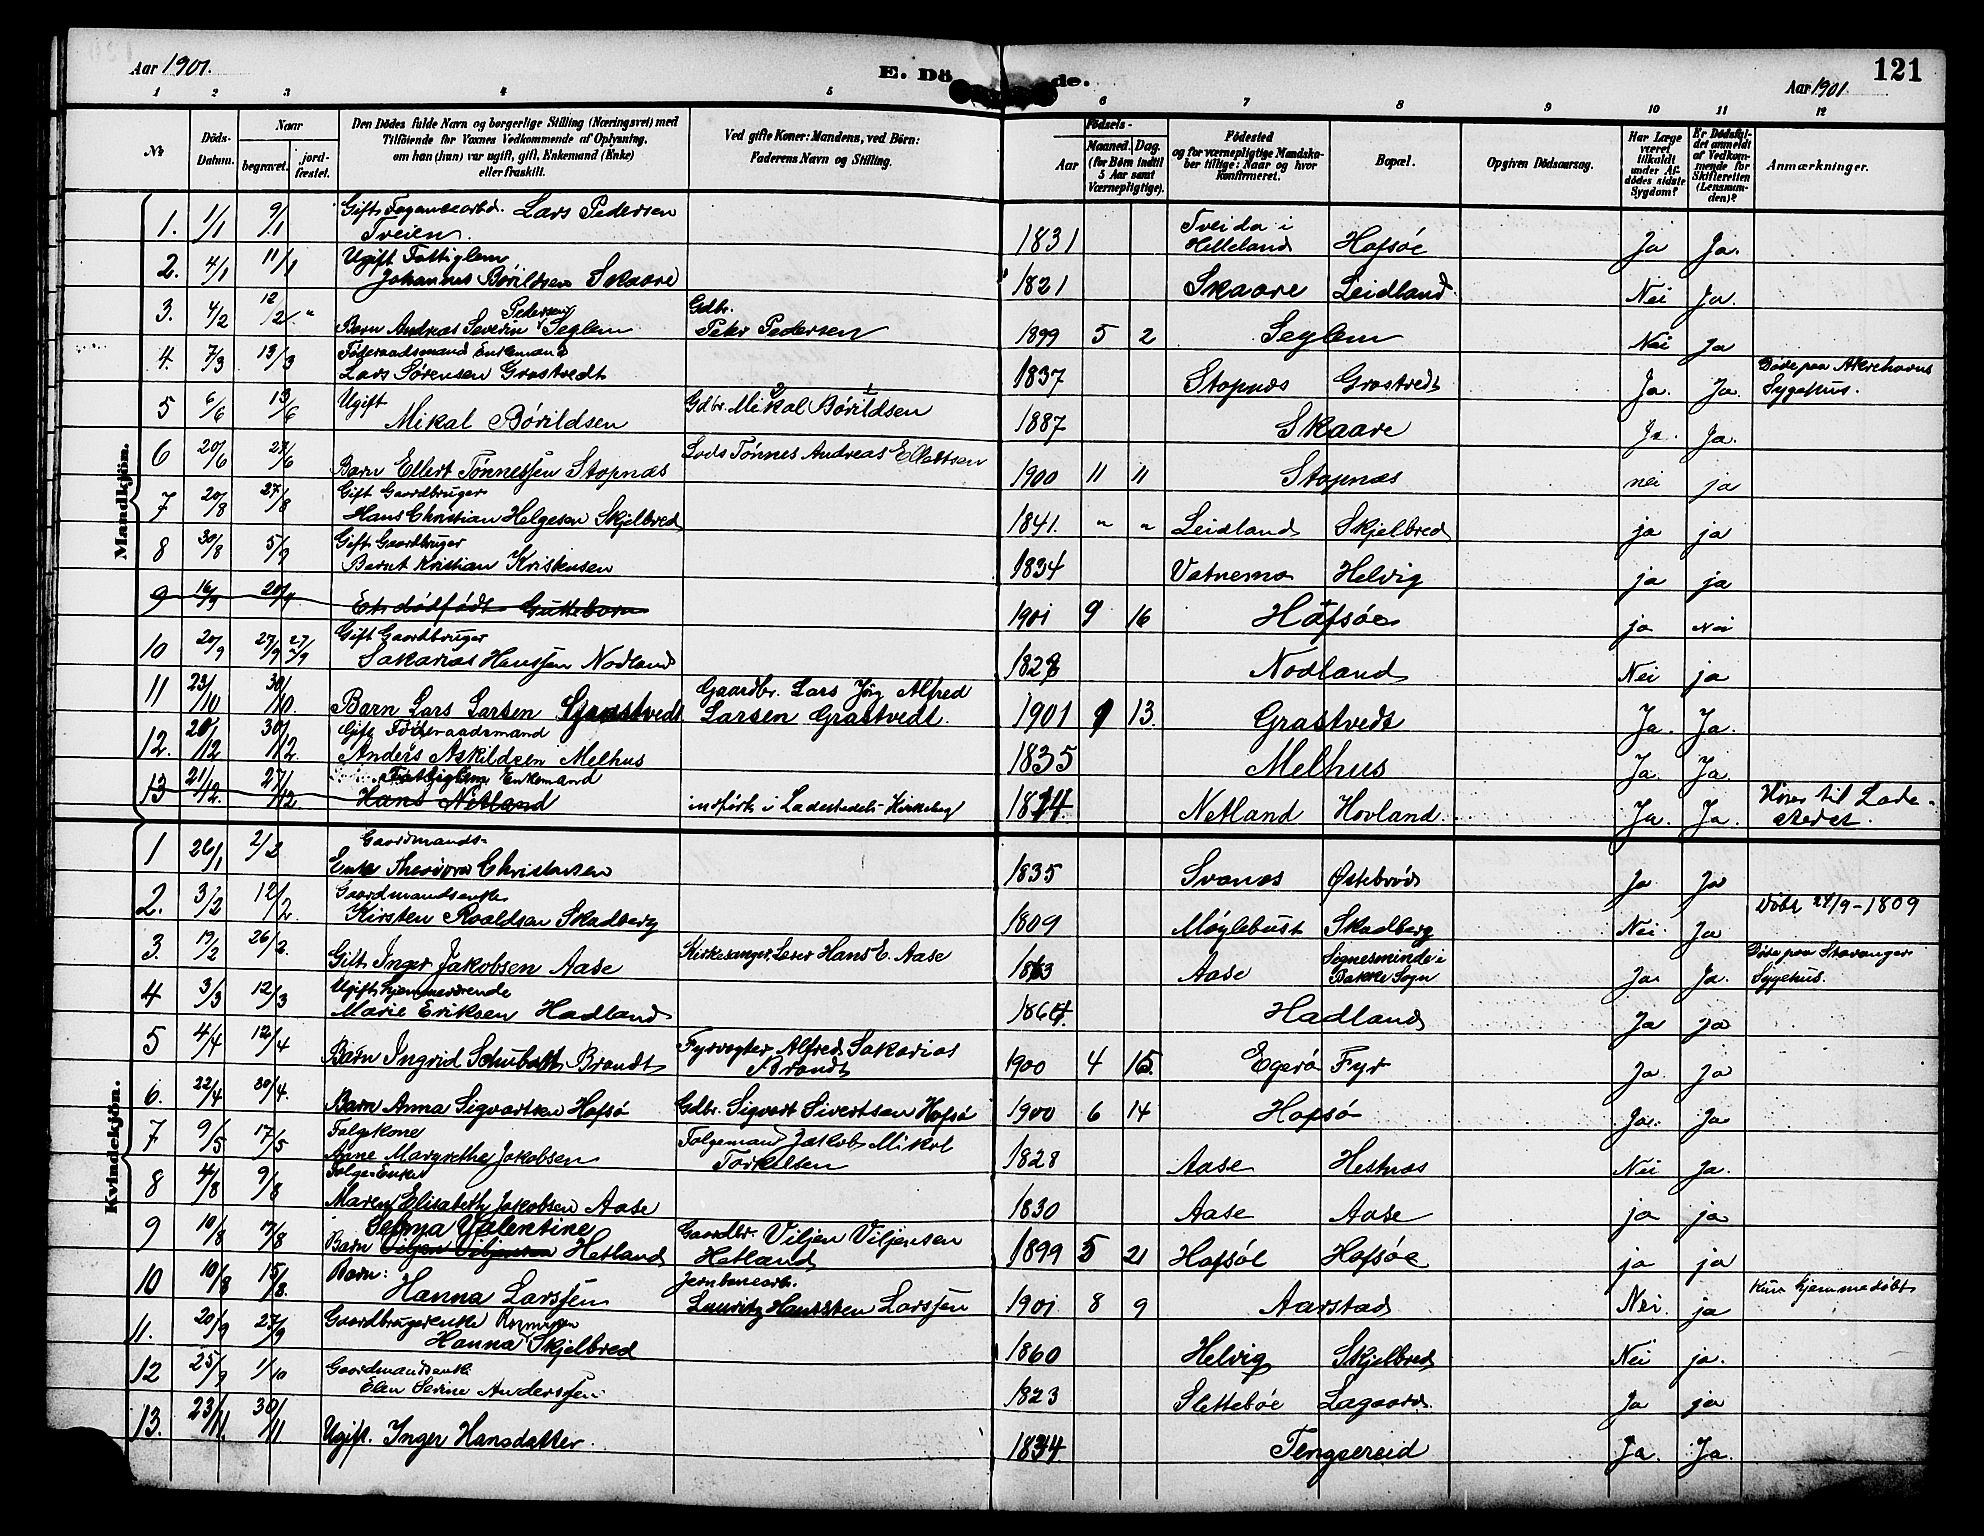 Aar 1901.
E. Dö de.
Aar 1901
121
1 2 3 4 5 6 7 8 9 10 11 12
Nr.
Döds-Datum.
Naar
begravet.
jord-fæstet.
Den Dödes fulde Navn og borgerlige Stilling (Næringsvei) med
Tilföiende for Voxnes Vedkommende af Oplysning,
om han (hun) var ugift, gift, Enkemand (Enke)
eller fraskilt.
Ved gifte Koner: Mandens, ved Börn:
Faderens Navn og Stilling.
Födsels-
Aar
Maaned. Dag.
(for Börn indtil
5 Aar samt
Værnepligtige).
Födested
og for værnepligtige Mandska-
ber tillige: Naar og hvor
konfirmeret.
Bopæl.
Opgiven Dödsaarsag.
Har Læge
været
tilkaldt
under Af-
dödes sidste
Sygdom?
Er Dödsfal-
det anmeldt
af Vedkom-
mende for
Skifteretten
(Lensman-
den)?
Anmærkninger.
Mandkjön.
1. 1/1 9/1 Gift Lars Pedersen
Tveien 1831 Tveida i Helleland Hofsöe Ja Ja.
2. 4/1 11/1 Ugift Fattiglem
Johannes Börildsen Skaare 1821 Skaare Leidland. Nei Ja.
3. 4/2 12/2 " Barn Andreas Severin Pedersen Seglem Gdbr. Peter Pedersen 1899 5 2 Seglem Nei Ja
4. 7/3 13/3 Föderaadsmand Enkemand
Lars Sörensen Grastvedt 1837 Stopnæs Grastvedt Ja. Ja. Döde paa Akrehavns Sygehus.
5 6/6 13/6 Ugift
Mikal Börildsen Gdbr. Mikal Börildsen 1887 Skaare Ja. Ja.
6 20/6 27/6 Barn Ellert Tönnessen Stopnæs Lods Tönnes Andreas Ellertsen 1900 11 11 Stopnæs nei ja
7 20/8 27/8 Gift Gaardbruger
Hans Christian Helgesen Skjelbred 1841. " " Leidland Skjelbred ja ja
8 30/8 5/9 Gift Gaardbruger
Bernt Kristian Kristensen 1834 Vatnemo Helvig ja ja
9 16/9 20/9 Et dödfödt Guttebarn 1901 9 16 Hofsöe ja Nei
10 20/9 27/9 27/9 Gift Gaardbruger
Sakarias Hanssen Nodland 1828 Nodland Nei ja
11 23/10 30/10. Barn Lars Larsen Grastvedt Gaardbr. Lars Jörg Alfred
Larsen Grastvedt. 1901 9 13. Grastvedt Ja. Ja.
12. 20/12 30/12. Gift Föderaadsmand
Anders Askildsen Melhus 1835 Melhus Ja Ja.
13 21/12. 27/12 Fattiglem Enkemand
Hans Netland indfört i Ladestedets Kirkebog 1814. Netland Hovland. Ja. Ja. Hörer til Lade-
stedet.
Kvindekjön.
1 26/1 2/2 Gaardmands-
Enke Theodora Christensen 1835 Svanæs Östebröd Ja Ja
2. 3/2 12/2 Gaardmandsenke
Kirsten Roaldsen Skadberg 1809 Möglebust Skadberg Nei. Ja Döbt 24/9-1809
3. 19/2 26/2. Gift. Inger Jakobsen Aase Kirkesanger, Lærer Hans E. Aase Aase Signesminde i
Bakke Sogn Ja. Ja. Döde paa Stavanger
Sygehus.
4 3/3 12/3 Ugift hjemmeværende
Marie Eriksen Hadland 1864. Hadland Ja ja
5 4/4 12/4 Barn Ingrid Schubart Brandt Fyrvogter Alfred Sakarias
Brandt 1900 4 15. Egerö Fyr Ja. Ja
6. 22/4 30/4. Barn Anna Sigvartsen Hofsö Gdbr. Sigvart Sivertsen Hofsö 1900 6 14 Hofsö Ja. Ja
7 9/5 17/5 Folgekone
Anne Margrethe Jakobsen Folgemand Jakob Mikal
Torkelsen 1828 Aase Hestnæs Nei Ja.
8 4/8 9/8 Folge Enke
Maren Elisabeth Jakobsen Aase 1830 Aase Aase ja ja
9 10/8 17/8 Selma Valentine
Barn Viljen Viljensen Hetland Gaardbr. Viljen Viljensen
Hetland 1899 5 21 Hofsöe Hofsöe ja ja
10 10/8 15/8. Barn:
Hanna Larssen Jernbanearb.
Lauritz Hansten Larssen 1901 8 9 Aarstad Nei. ja Kun hjemmedöbt
11. 20/9 27/9 Gaardbrugerenke Rasmussen
Hanna Skjelbred 1860 Helvig Skjelbred Nei ja.
12 25/9 1/10 Gaardmandsenke
Elen Serine Anderssen 1823 Sletteböe Lagaard. Ja ja
13. 23/11. 30/11 Ugift. Inger Hansdatter. 1834. Tengsereid Ja. Ja.